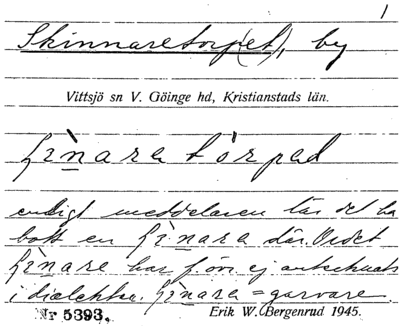 1
Skinnaretorp(et), by
Vittsjö sn V. Göinge hd, Kristianstads län.
ʃìnaratórpad
enligt meddelaren lär det ha
bott en ʃìnara där. Ordet
ʃìnare har f. öv. ej antecknats
i dialekten. ʃìnara = garvare.
Nr 5393.
Erik W. Bergenrud 1945.